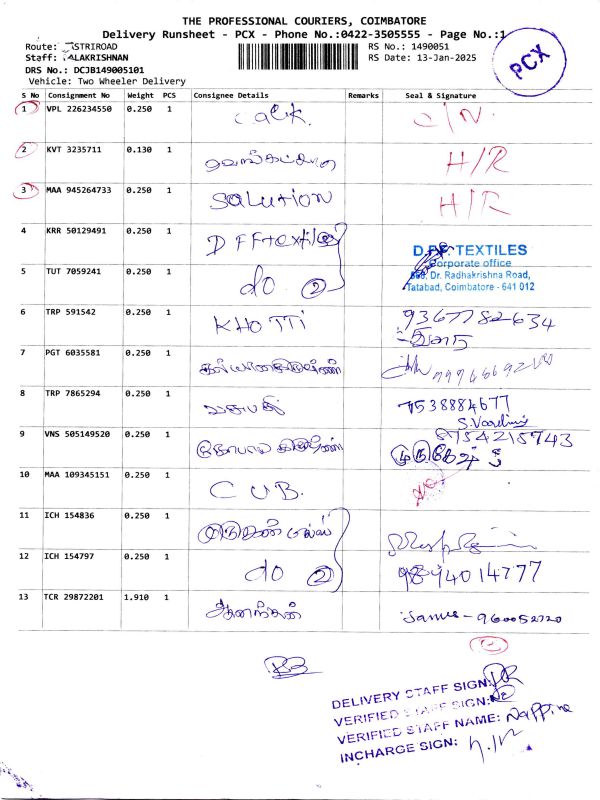 THE PROFESSIONAL COURIERS, COIMBATORE
Delivery Runsheet - PCX - Phone No.:0422-3505555 - Page No.:1
Route: ASTRIROAD RS No.: 1490051
Staff: BALAKRISHNAN RS Date: 13-Jan-2025
DRS No.: DCJB149005101
Vehicle: Two Wheeler Delivery
PCX
S No Consignment No Weight PCS Consignee Details Remarks Seal & Signature
1 VPL 226234550 0.250 1 C/N.
2 KVT 3235711 0.130 1 H/R
3 MAA 945264733 0.250 1 Salution H/R
4 KRR 50129491 0.250 1 DFF textiles
D.F.F. TEXTILES
Corporate office
Dr. Radhakrishna Road,
Tatabad, Coimbatore - 641 012
5 TUT 7059241 0.250 1 do 2
6 TRP 591542 0.250 1 KHOTTI 9367782634
7 PGT 6035581 0.250 1
8 TRP 7865294 0.250 1 7538884677
9 VNS 505149520 0.250 1 8754215743
10 MAA 109345151 0.250 1 CUB.
11 ICH 154836 0.250 1
12 ICH 154797 0.250 1 do 2 9894014777
13 TCR 29872201 1.910 1 ஆனந்தன்
DELIVERY STAFF SIGN:
VERIFIED STAFF SIGN:
VERIFIED STAFF NAME:
INCHARGE SIGN: